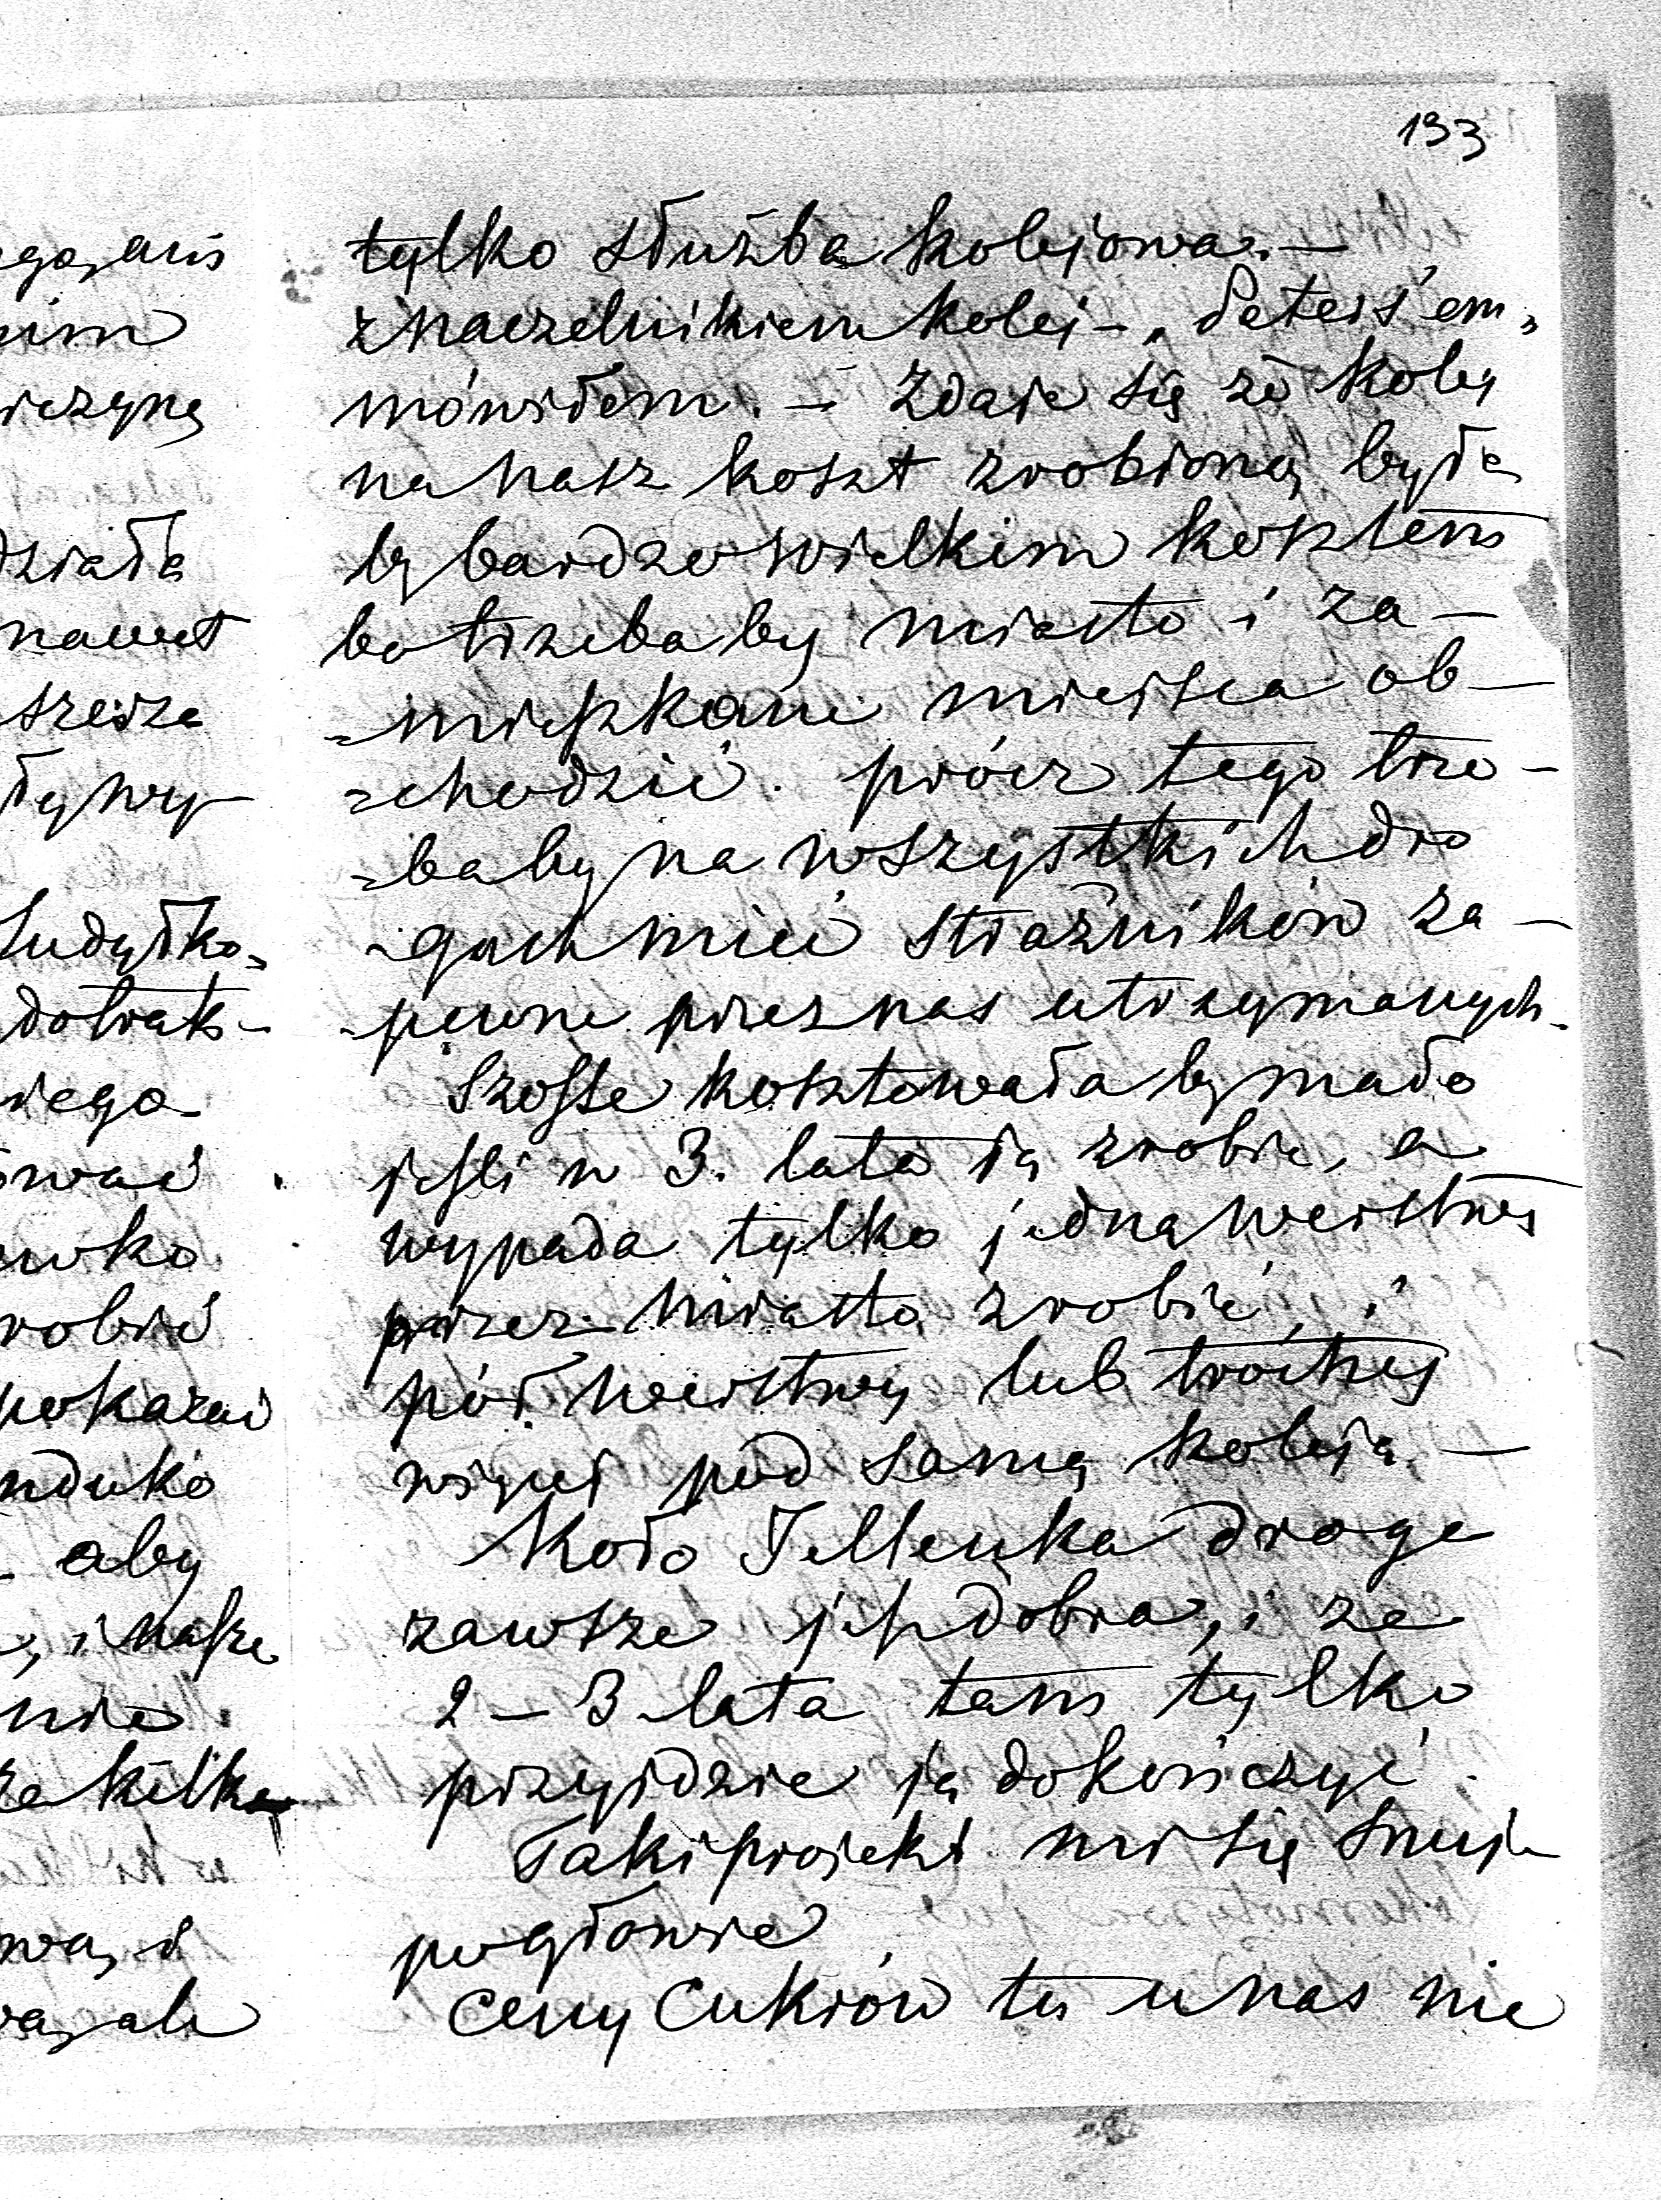 133
tylko służba kolejowa. —
z naczelnikiem kolej — „Peters'em„
mówiłem. — Zdaje się że kolej
na nasz koszt zrobioną była
by bardzo wielkim kosztem
bo trzeba by miasto i za-
=mieszkane miejsca ob-
=chodzić. prócz tego trze-
=baby na wszystkich dro
=gach mieć strażników za-
-pewne przez nas utrzymanych.
Szosse kosztowała by mało
jeśli w 3. lata ją zrobić, a
wypada tylko jedną werstwę
przez miasto zrobić, i
pół werstwy lub troche
więcej pod samą koleją —
Koło droga
zawsze jest dobra, i za
2 — 3 lata tam tylko
przyjdzie ją dokończyć.
Taki projekt mi się snuje
po głowie
Ceny Cukrów tu u nas nie
nim
działa
nawet
Ływy-
dotrak-
niego
robić
pokazać
aby
, i nasze
nie.
za kilka